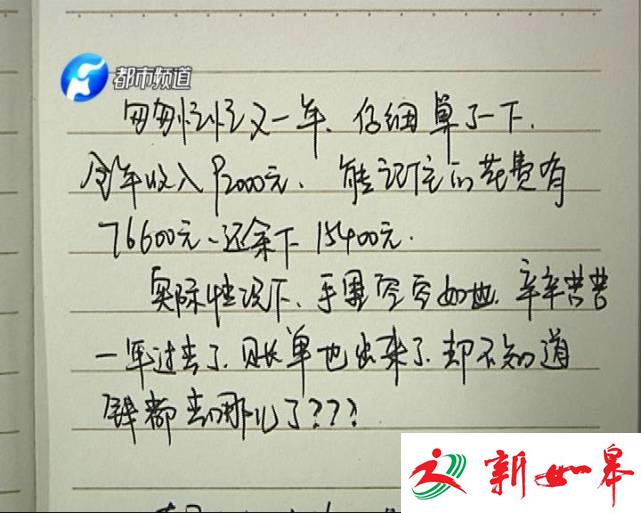 都市频道
匆匆忙忙又一年、仔细算了一下、
全年收入92000元、能记住的花费有
76600元、还余下15400元.
实际情况下、手里空空如也、辛辛苦苦
一年过去了、账单也出来了、却不知道
钱都去哪儿了???
新如皋